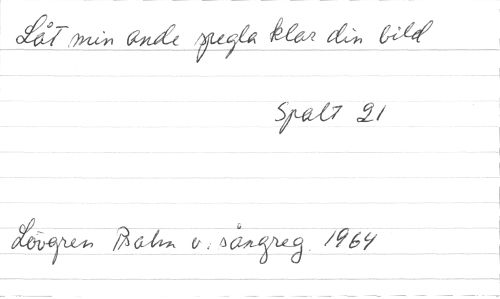 Låt min ande spegla klar din bild
Spalt 21
Lövgren Psalm o. sångreg. 1964